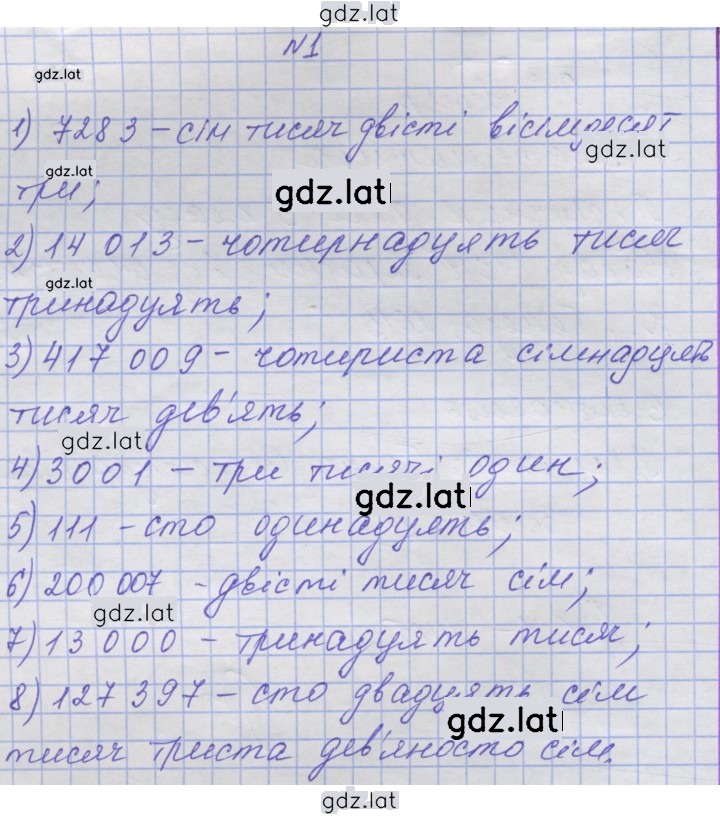 gdz.lat
№1
gdz.lat
1) 7283 – сім тисяч двісті вісімдесят
gdz.lat
gdz.lat
gdz.lat
три;
2) 14 013 – чотирнадцять тисяч
gdz.lat
тринадцять;
3) 417 009 – чотириста сімнадцять
тисяч дев'ять;
gdz.lat
4) 3001 – три тисячі один;
gdz.lat
5) 111 – сто одинадцять;
6) 200 007 – двісті тисяч сім;
gdz.lat
7) 13 000 – тринадцять тисяч;
8) 127 397 – сто двадцять сім
gdz.lat
тисяч триста дев'яносто сім.
gdz.lat